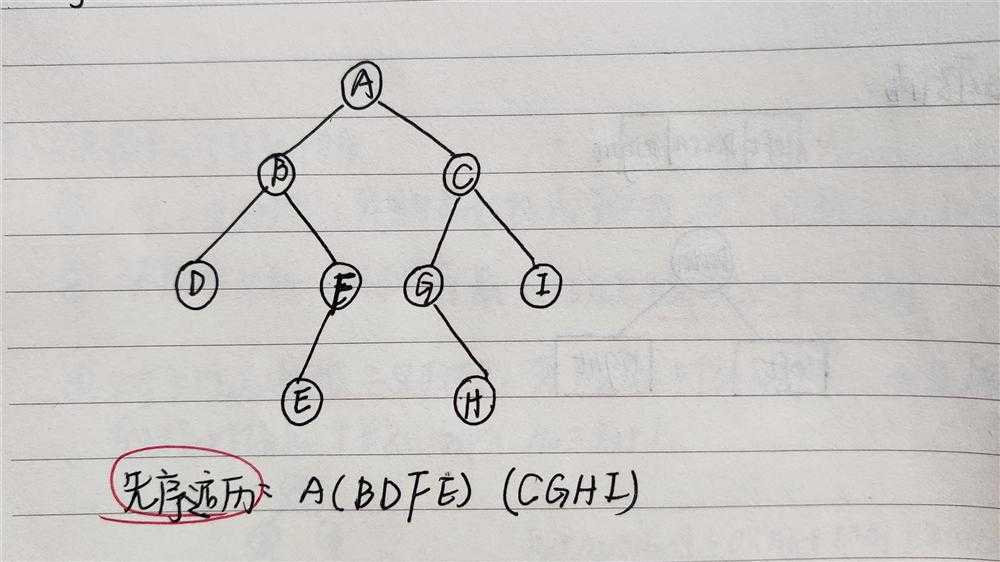 A
B C
D F G I
E H
先序遍历: A(BDFE) (CGHI)